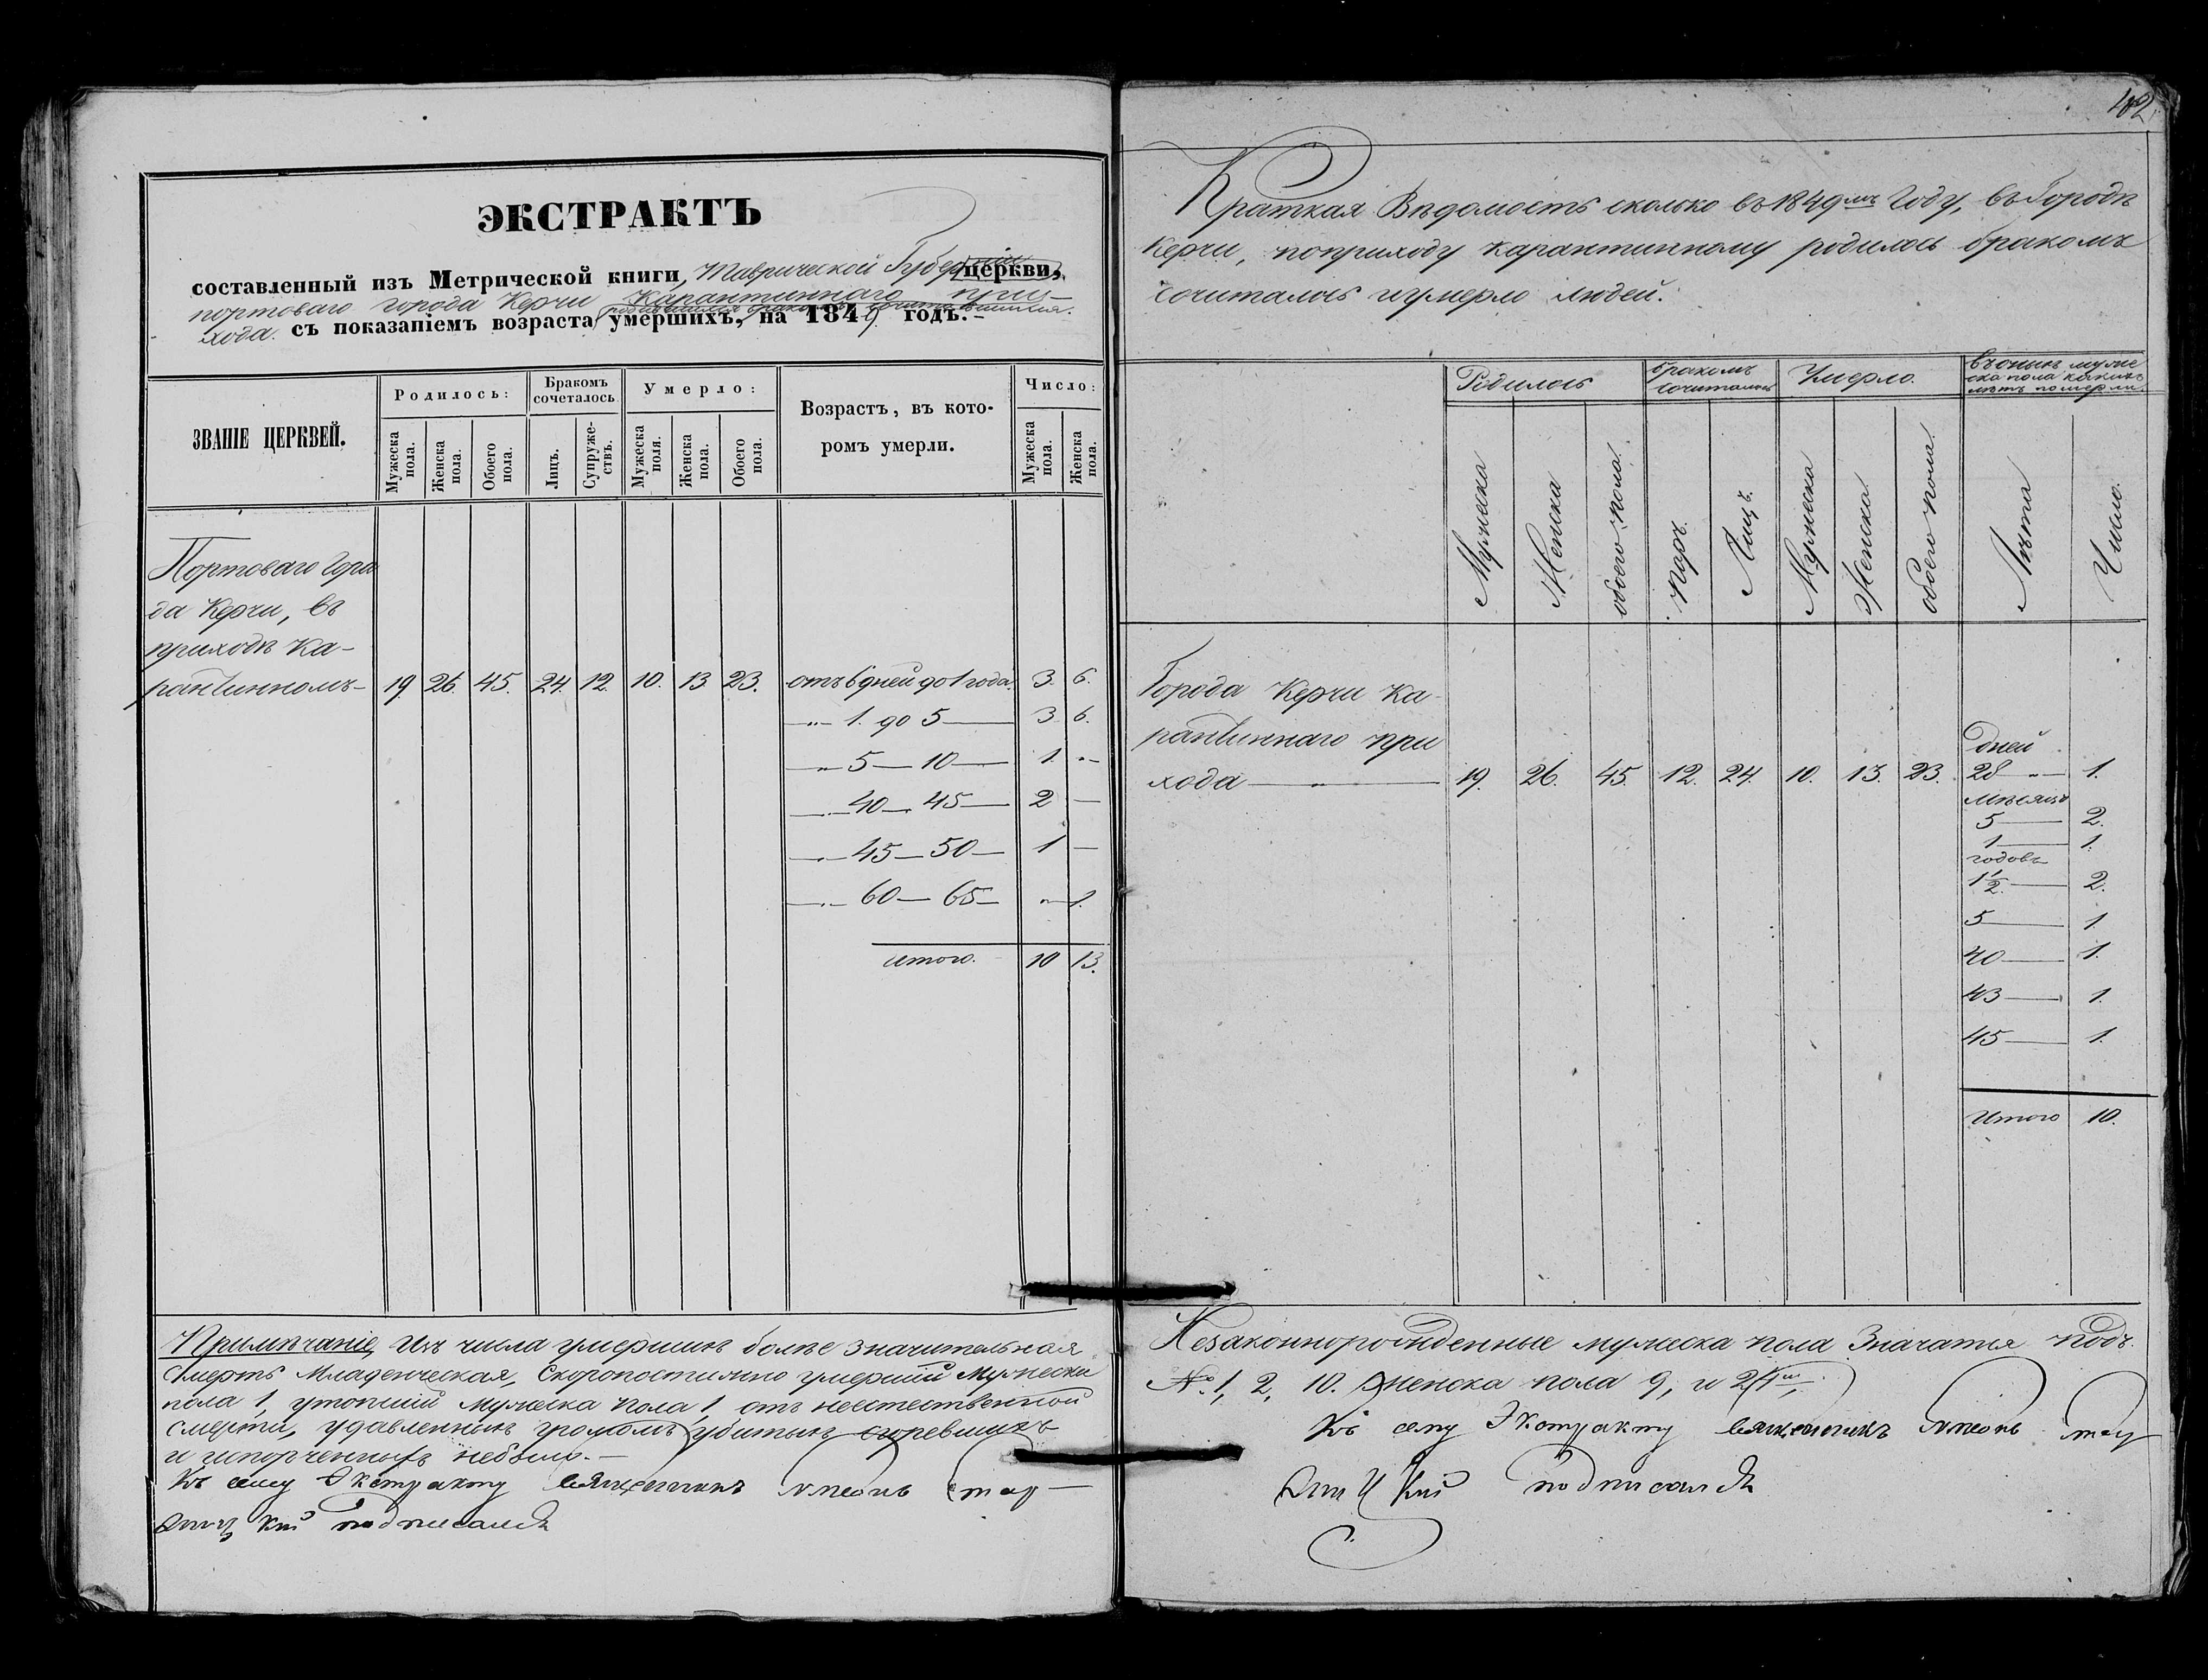 ЭКСТРАКТЪ
составленный изъ Метрической книги, Таврической Губерніи церкви,
портоваго города Керчи Карантиннаго при-
хода. съ показаніемъ возраста умершихъ, на 1849 годъ.
ЗВАНІЕ ЦЕРКВЕЙ.
Родилось:
Бракомъ сочеталось
Умерло:
Возрастъ, въ кото-
ромъ умерли.
Число:
Мужеска пола.
Женска пола.
Обоего пола.
Лицъ.
Супруже-ствъ.
Мужеска поля.
Женска пола.
Обоего пола.
Мужеска пола.
Женска пола.
Портоваго горо
да Керчи, въ
приходѣ Ка-
рантинномъ- 19. 26. 45. 24. 12. 10. 13 23. отъ 6 дней до 1 года. 3. 6.
„ 1. до 5 — 3 6.
„ 5 — 10 — 1. „
„ 40 — 45 — 2 —
„ 45 — 50 — 1 —
„ 60 — 65 — „ 1.
итого. 10 13.
Примѣчаніе, Изъ числа умершихъ болѣе значительная
Смерть Младенческая, Скоропостижно умершій Мужеска
пола 1, утопшій мужеска пола 1, отъ неестественной
смерти, удавленныхъ громомъ убитыхъ сгоревшихъ
и испорченныхъ небыло.-
Къ сему Экстракту священникъ
подписался
42
Краткая Вѣдомость сколько въ 1849мъ Году, въ Городѣ
Керчи, поприходу карантинному родилось бракомъ
сочиталось и умерло людей.
Родилось
бракомъ сочиталось
Умерло.
въ оныхъ муже
ска пола какихъ
лѣтъ померли.
Мужеска
Женска
обоего пола.
паръ
Лицъ.
Мужеска
Женска
обоего пола.
Лѣта
Число.
Города Керчи Ка
рантиннаго при
хода — „ — 19. 26. 45. 12. 24. 10. 13. 23.
дней
28 „ 1.
мѣсяцъ
5 — 2.
1 — 1.
годовъ
1½ — 2.
5 — 1.
40 — 1.
43 — 1.
45 — 1.
Итого 10.
Незаконнорожденные мужеска пола Значатся подъ
№. 1, 2, 10. женска пола 9, и
Къ сему Экстракту священникъ
подписался